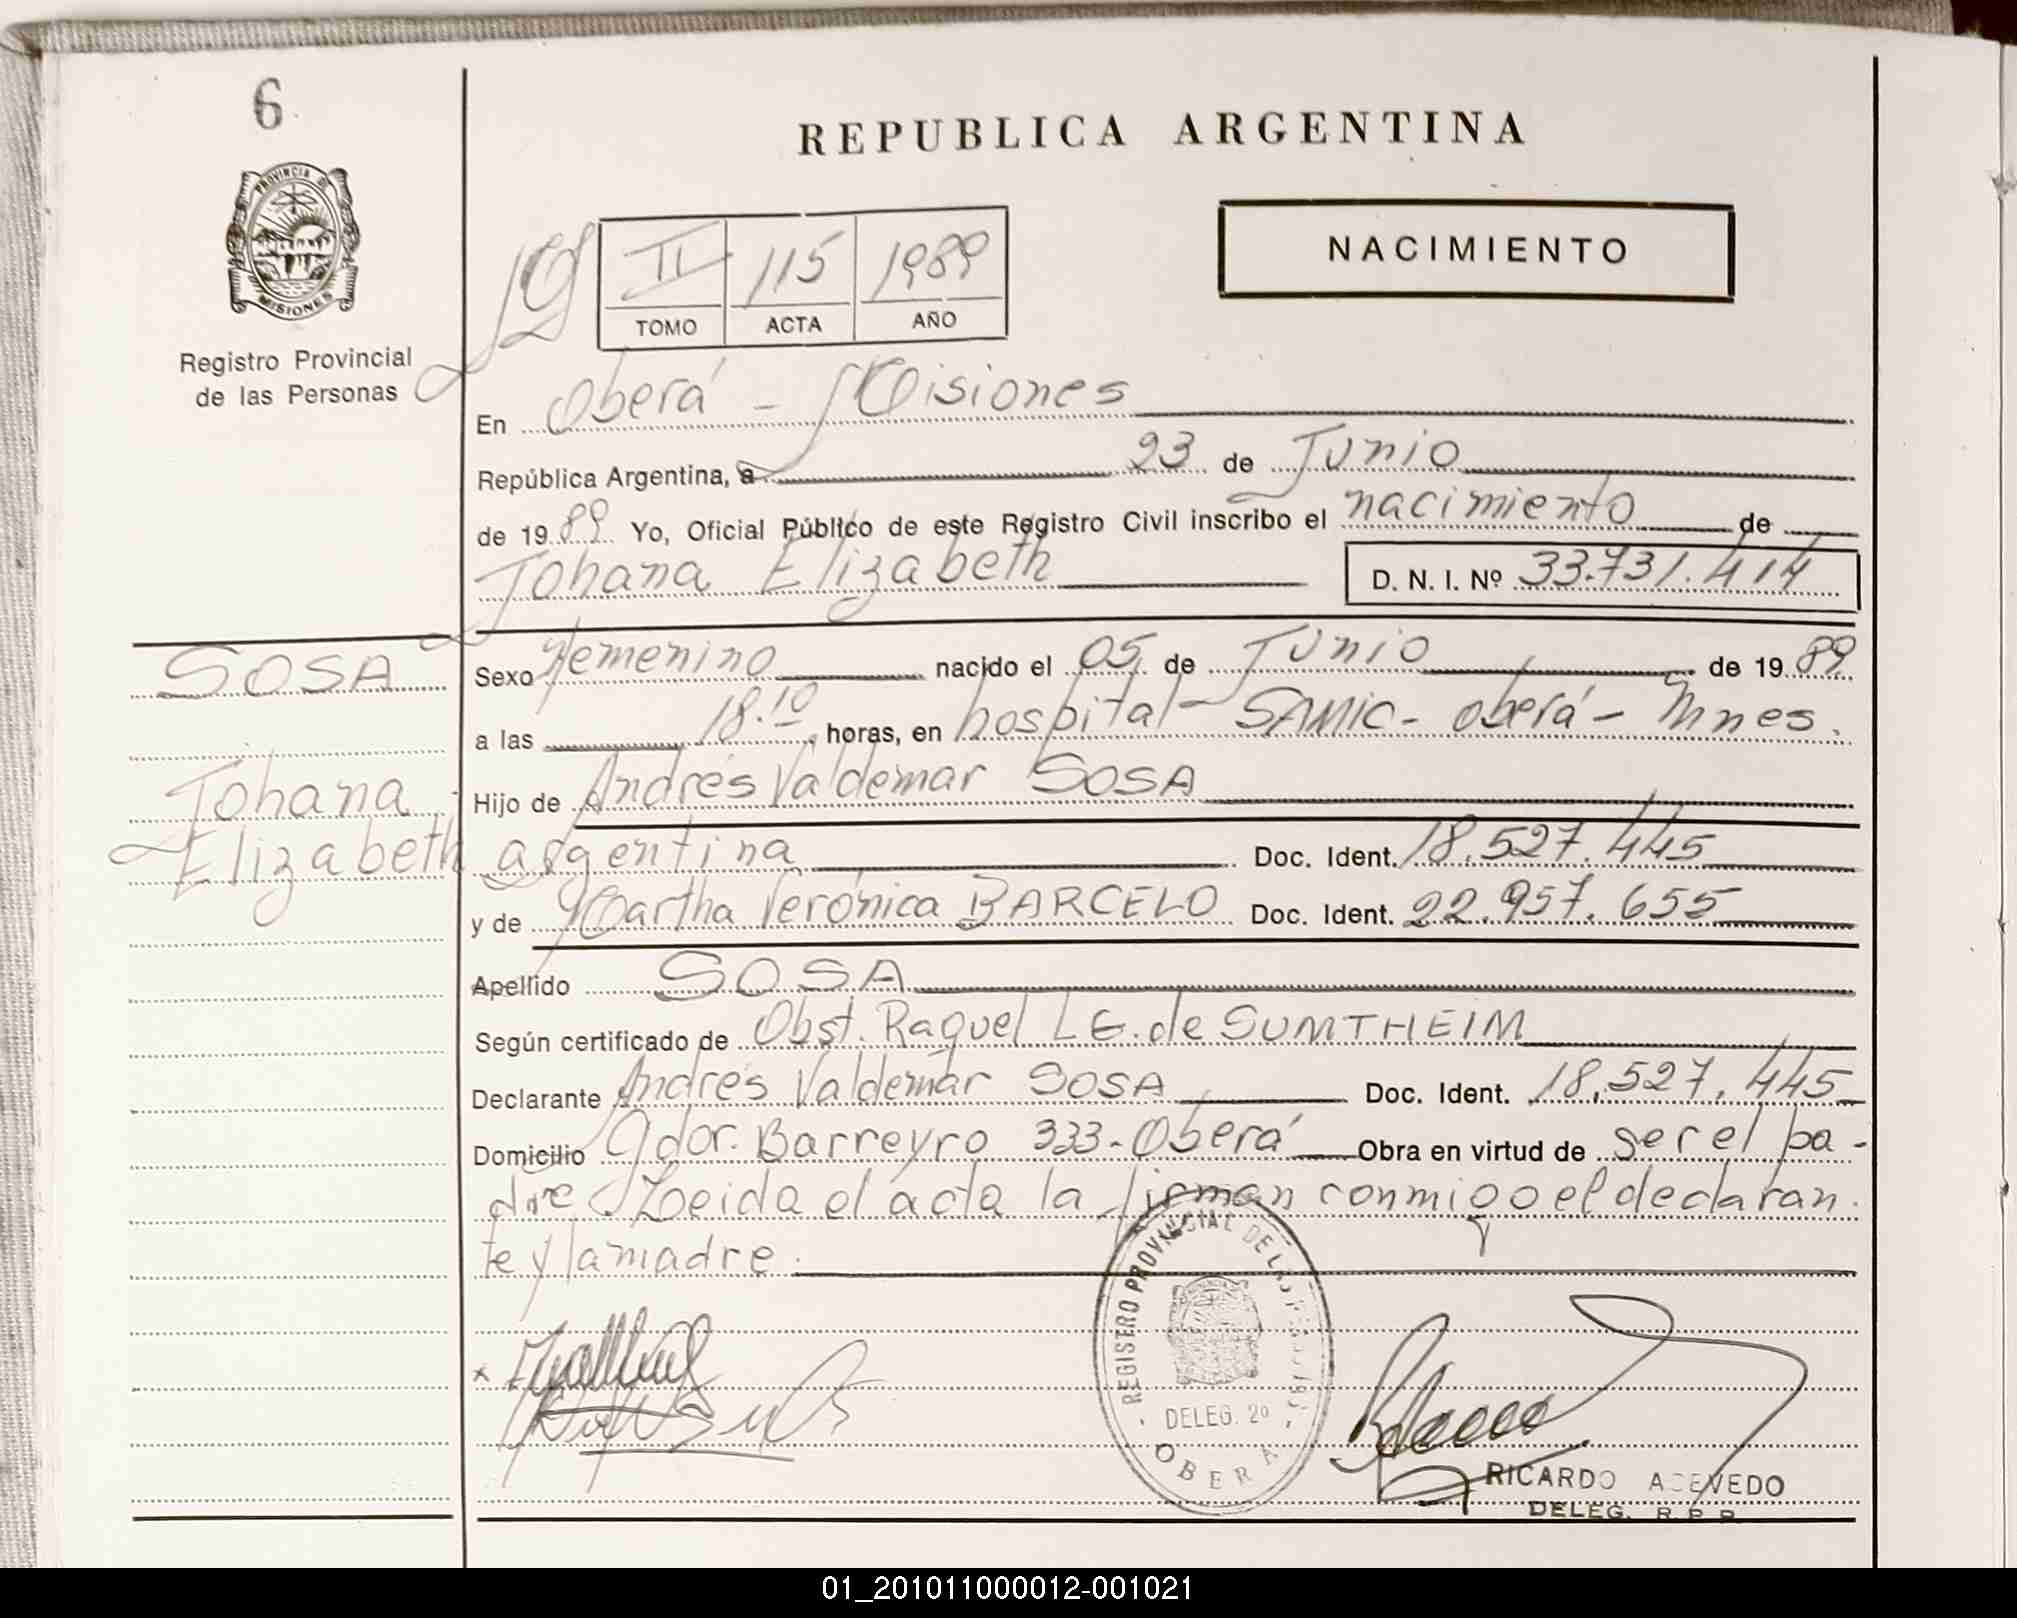 6
REPUBLICA ARGENTINA
PROVINCIA DE
MISIONES
Registro Provincial
de las Personas
II 115 1989
TOMO ACTA AÑO
NACIMIENTO
En Oberá - Misiones
República Argentina, a 23 de Junio
de 1989 Yo, Oficial Público de este Registro Civil inscribo el nacimiento de
Johana Elizabeth D. N. I. Nº 33.731.414
SOSA
Johana
Elizabeth
Sexo femenino nacido el 05 de Junio de 1989
a las 18.10 horas, en hospital - SAMIC - Oberá - Mnes.
Hijo de Andrés Valdemar SOSA
argentina Doc. Ident. 18.527.445
y de Martha Verónica BARCELO Doc. Ident. 22.957.655
Apellido SOSA
Según certificado de Obst. Raquel L G. de SUMTHEIM
Declarante Andrés Valdemar SOSA Doc. Ident. 18.527.445
Domicilio Gdor. Barreyro 333 - Oberá Obra en virtud de ser el pa-
dre Leida el acta la firman conmigo el declaran
te y la madre.
REGISTRO PROVINCIAL DE LAS PERSONAS
DELEG. 2º
OBERA
RICARDO ACEVEDO
DELEG. R. P. P.
01_201011000012-001021